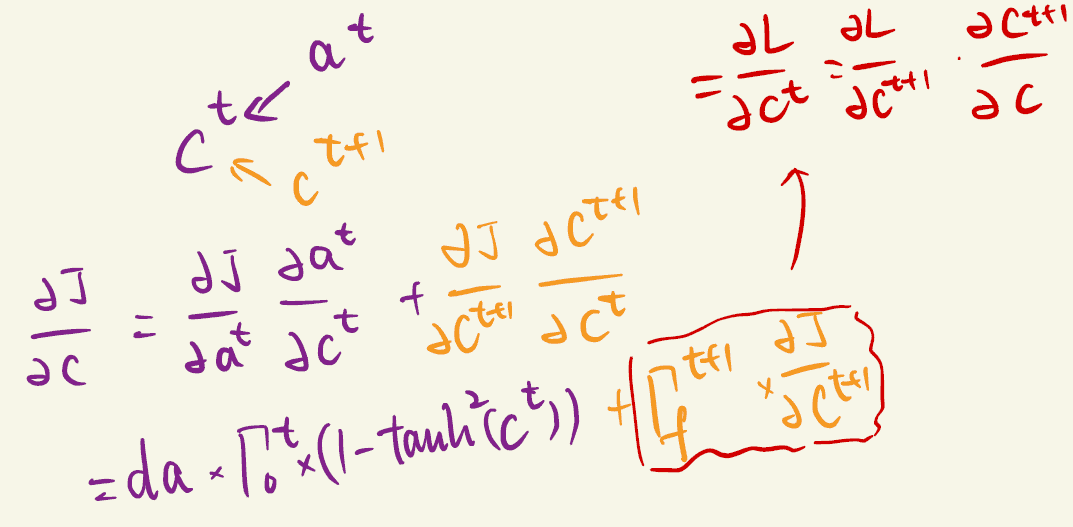 a^t
C^t ← c^{t+1}
= ∂L/∂C^t = ∂L/∂C^{t+1} · ∂C^{t+1}/∂C
∂J/∂C = ∂J/∂a^t ∂a^t/∂C^t + ∂J/∂C^{t+1} ∂C^{t+1}/∂C^t
= da × Γ_o^t × (1 - tanh²(C^t)) + Γ_f^{t+1} × ∂J/∂C^{t+1}